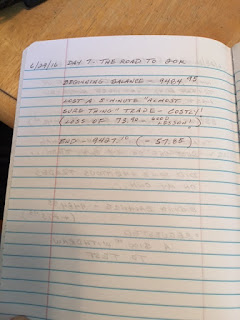 6/29/16 DAY 7 - THE ROAD TO 60K
BEGINNING BALANCE - 9484.95
LOST A 5-MINUTE "ALMOST
SURE THING" TRADE - COSTLY!
(LOSS OF 73.90 - GOOD LESSON!)
END - 9427.10 (- 57.85)